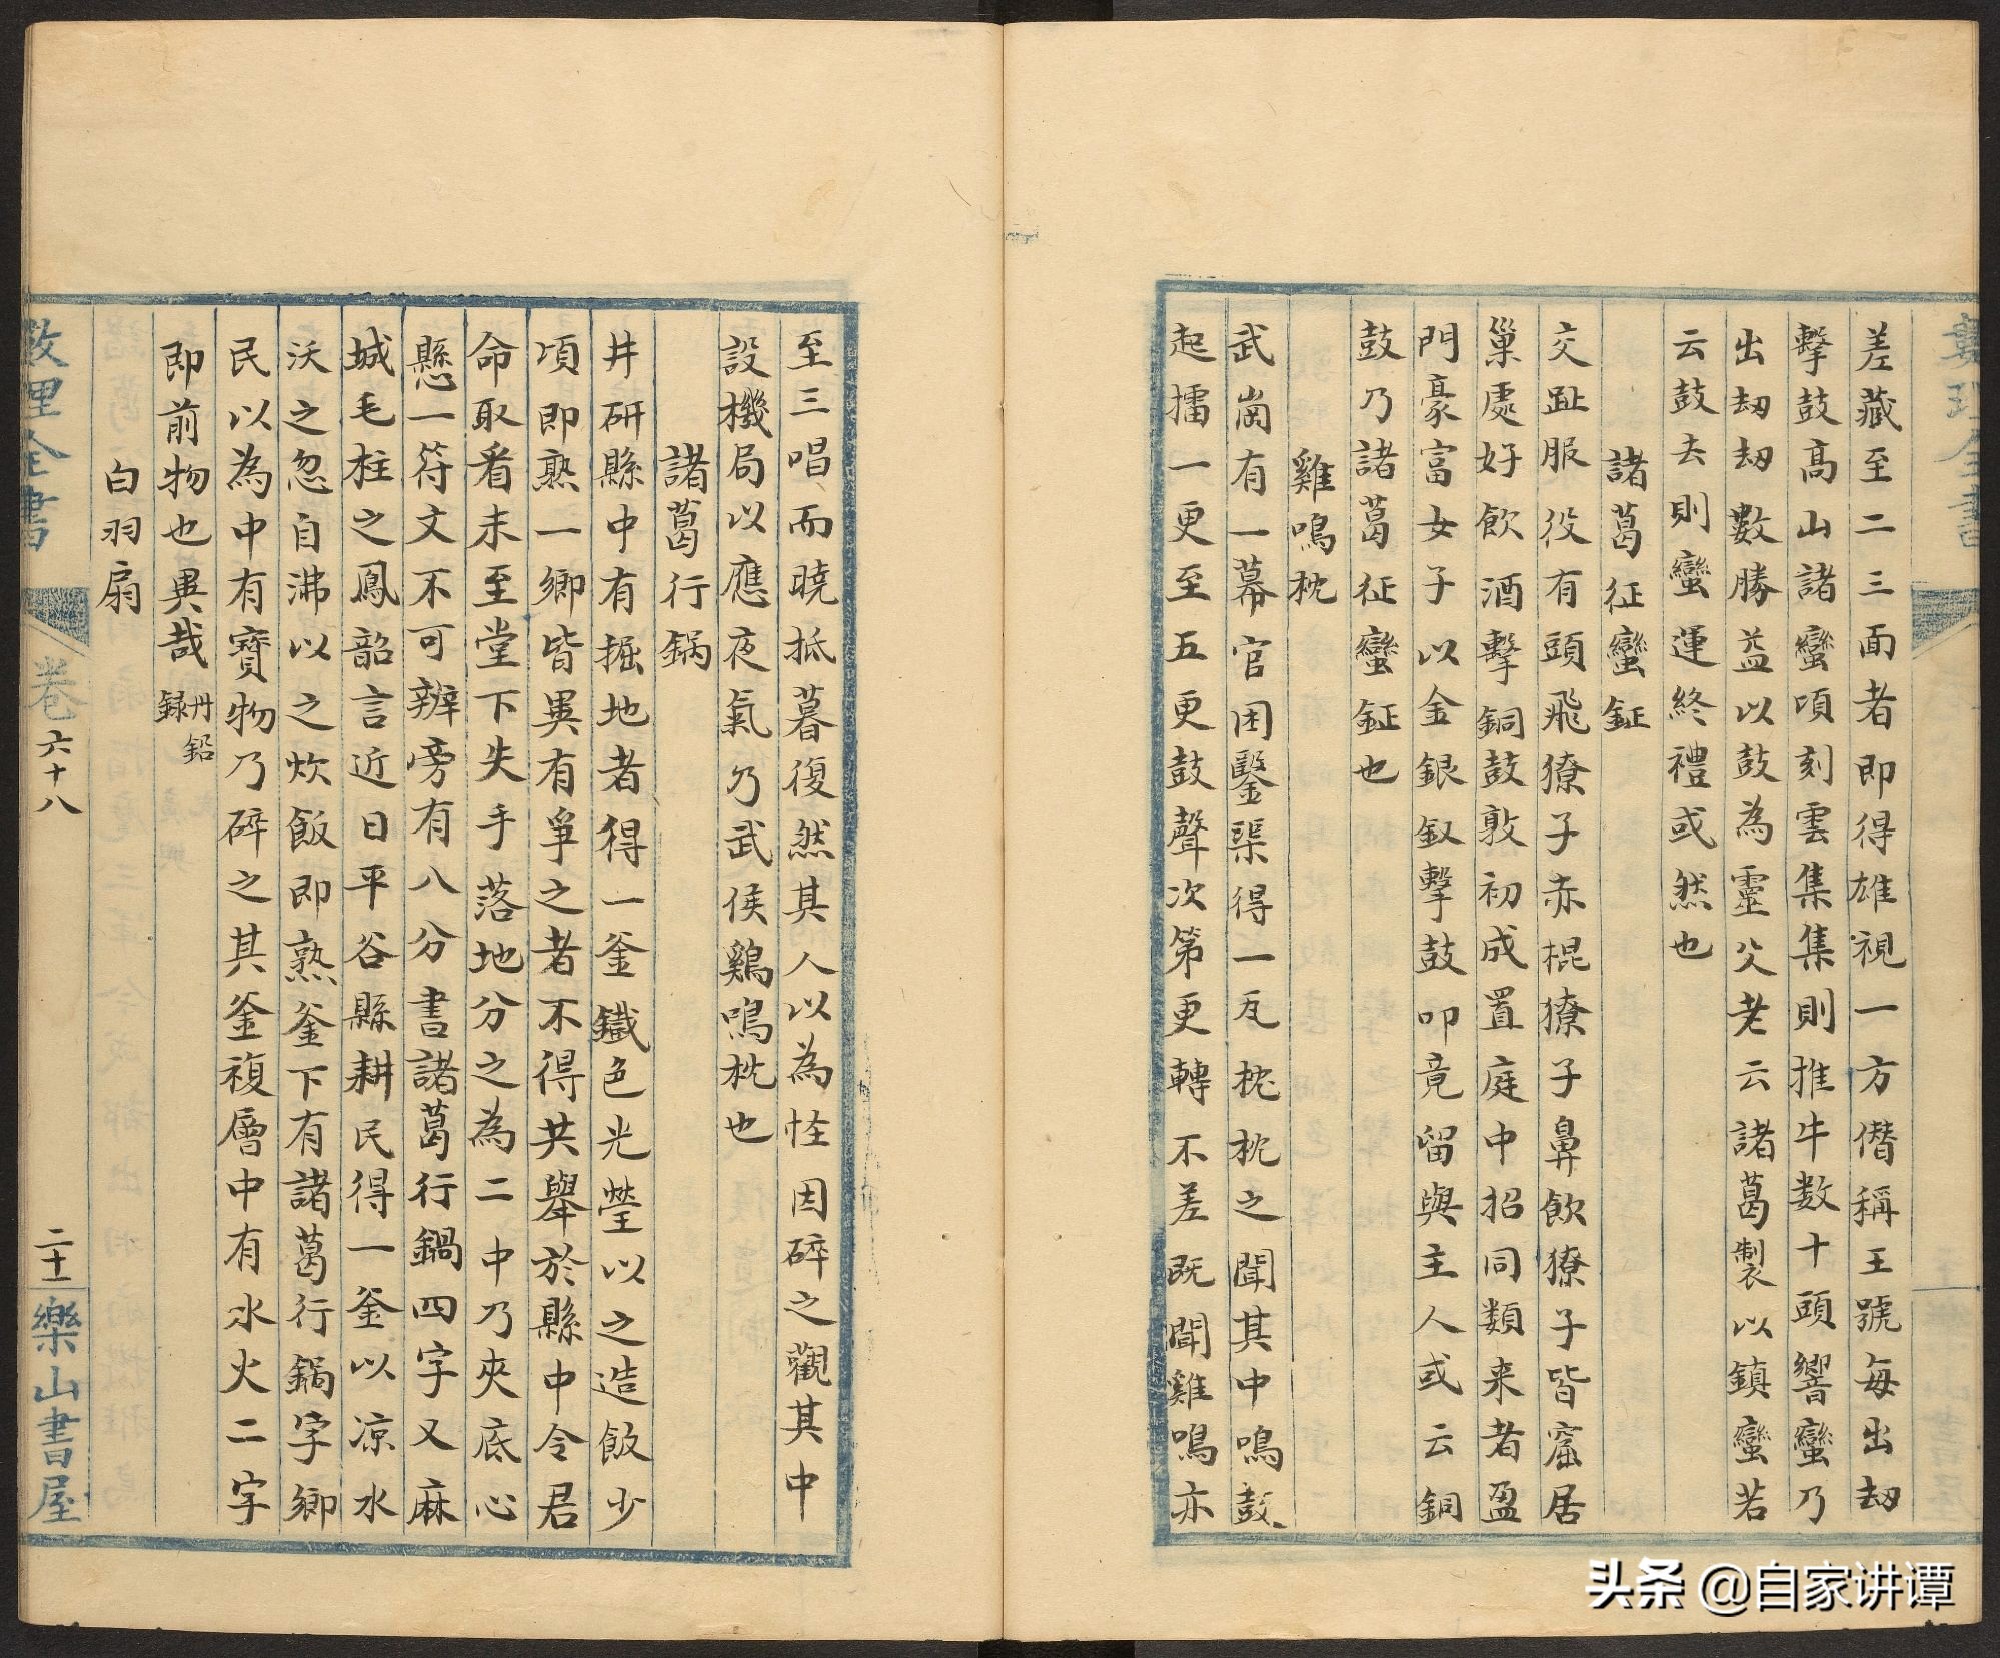 差藏至二三面者即得雄視一方僭稱王號每出劫
擊鼓高山諸蠻頃刻雲集集則推牛数十頭響蠻乃
出劫劫數勝益以鼓為靈父老云諸葛製以鎮蠻若
云鼓去則蠻運終禮或然也
諸葛征蠻鉦
交趾服役有頭飛獠子赤棍獠子鼻飲獠子皆窟居
巢處好飲酒擊銅鼓敦初成置庭中招同類来者盈
門豪富女子以金銀釵擊鼓叩竟留與主人或云銅
鼓乃諸葛征蠻鉦也
雞鳴枕
武崗有一幕官困鑿渠得一瓦枕枕之聞其中鳴鼓
起擂一更至五更鼓聲次第更轉不差既聞雞鳴亦
至三唱而曉抵暮復然其人以為怪因碎之觀其中
設機局以應夜氣乃武侯鷄鳴枕也
諸葛行鍋
井研縣中有掘地者得一釜鐵色光瑩以之造飯少
頃即熟一鄉皆異有爭之者不得共舉於縣中令君
命取看未至堂下失手落地分之為二中乃夾底心
懸一符文不可辨旁有八分書諸葛行鍋四字又麻
城毛柱之鳳韶言近日平谷縣耕民得一釜以凉水
沃之忽自沸以之炊飯即熟釜下有諸葛行鍋字鄉
民以為中有寶物乃碎之其釜複層中有水火二字
即前物也異哉 丹鉛録
白羽扇
數理全書 卷六十八 二十一 樂山書屋
头条 @自家讲谭